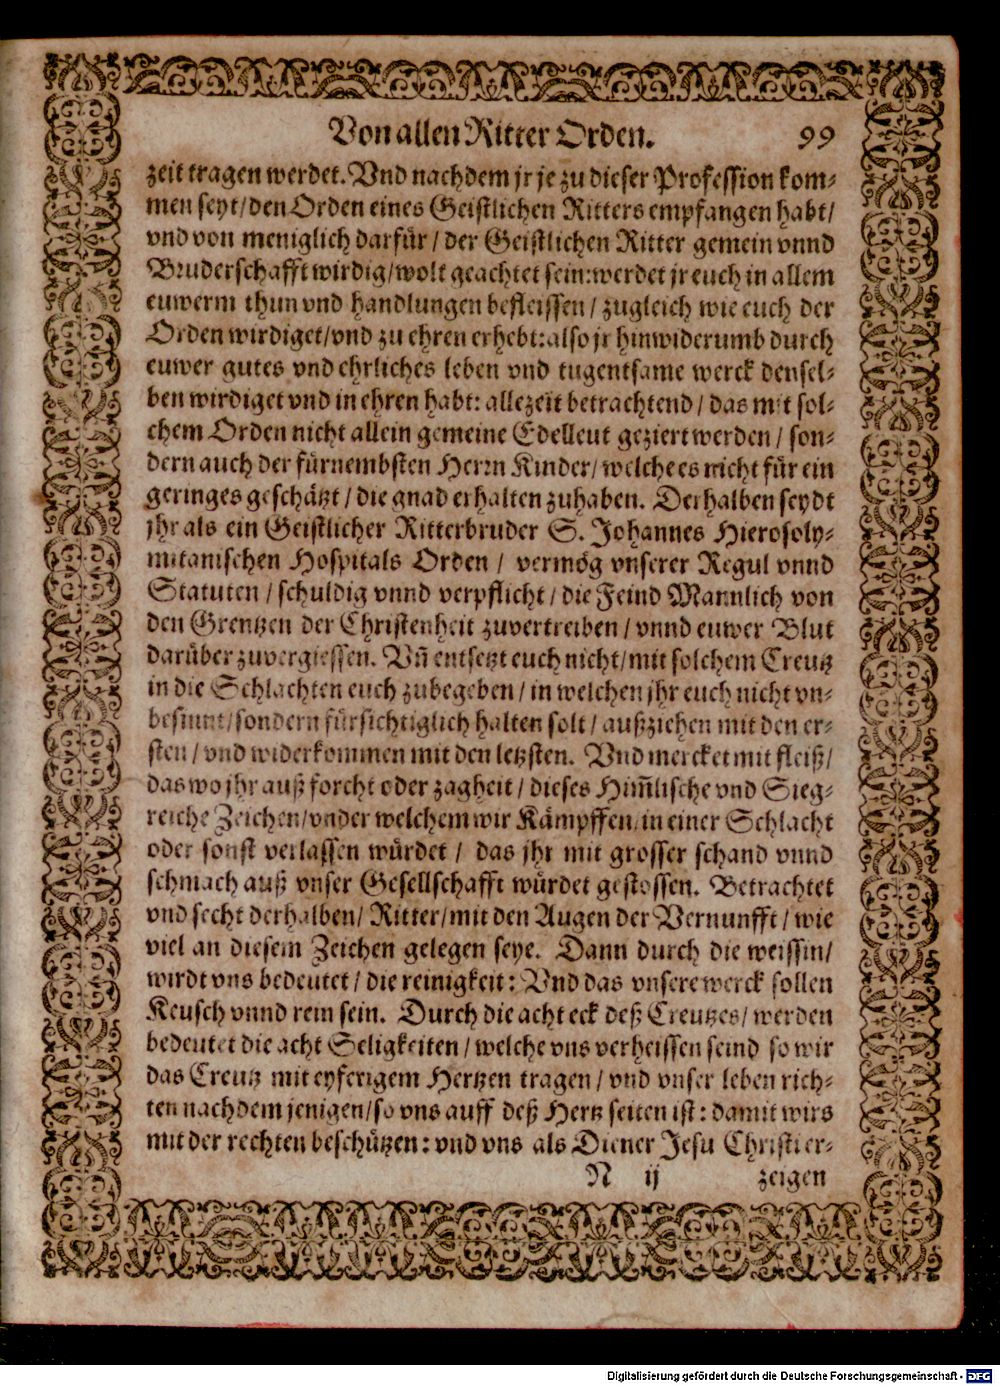 Von allen Ritter Orden. 99
zeit tragen werdet. Vnd nachdem jr je zu dieser Profession kom-
men seyt/den Orden eines Geistlichen Ritters empfangen habt/
vnd von meniglich darfür / der Geistlichen Ritter gemein vnnd
Bruderschafft wirdig/wolt geachtet sein: werdet jr euch in allem
euwerm thun vnd handlungen befleissen / zugleich wie euch der
Orden wirdiget/vnd zu ehren erhebt: also jr hinwiderumb durch
euwer gutes vnd ehrliches leben vnd tugentsame werck densel-
ben wirdiget vnd in ehren habt: allezeit betrachtend / das mit sol-
chem Orden nicht allein gemeine Edelleut geziert werden / son-
dern auch der fürnembsten Herrn Kinder/ welche es nicht für ein
geringes geschätzt / die gnad erhalten zuhaben. Derhalben seydt
jhr als ein Geistlicher Ritterbruder S. Johannes Hierosoly-
mitanischen Hospitals Orden / vermög vnserer Regul vnnd
Statuten / schuldig vnnd verpflicht / die Feind Mannlich von
den Grentzen der Christenheit zuvertreiben / vnnd euwer Blut
darüber zuvergiessen. Vñ entsetzt euch nicht/ mit solchem Creutz
in die Schlachten euch zubegeben / in welchen jhr euch nicht vn-
besinnt/sondern fürsichtiglich halten solt / außziehen mit den er-
sten / vnd widerkommen mit den letzsten. Vnd mercket mit fleiß/
das wo jhr auß forcht oder zagheit / dieses Him̃lische vnd Sieg-
reiche Zeichen/vnder welchem wir Kämpffen/in einer Schlacht
oder sonst verlassen würdet / das jhr mit grosser schand vnnd
schmach auß vnser Gesellschafft würdet gestossen. Betrachtet
vnd secht derhalben/ Ritter/mit den Augen der Vernunfft / wie
viel an diesem Zeichen gelegen seye. Dann durch die weissin/
wirdt vns bedeutet / die reinigkeit: Vnd das vnsere werck sollen
Keusch vnnd rein sein. Durch die acht eck deß Creutzes/ werden
bedeutet die acht Seligkeiten / welche vns verheissen seind so wir
das Creutz mit eyferigem Hertzen tragen / vnd vnser leben rich-
ten nach dem jenigen/so vns auff deß Hertz seiten ist: damit wirs
mit der rechten beschützen: vnd vns als Diener Jesu Christi er-
N ij zeigen
Digitalisierung gefördert durch die Deutsche Forschungsgemeinschaft - DFG